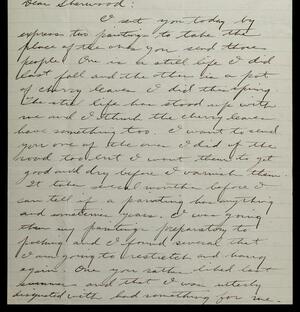 Dear Sherwood:
I sent you today by
express two paintings to take the
place of the ones you send those
people. One is a still life I did
last fall and the other is a pot
of cherry leaves I did this spring
The still life has stood up with
me and I think the cherry leaves
have something too. I want to send
you one of the ones I did of the
wood too but I want them to get
good and dry before I varnish them.
It takes several months before I
can tell if a painting has anything
and sometimes years. I was going
thru my paintings preparatory to
packing and I found several that
I am going to restretch and hang
again. One you rather liked last
summer and that I was utterly
disgusted with had something for me.